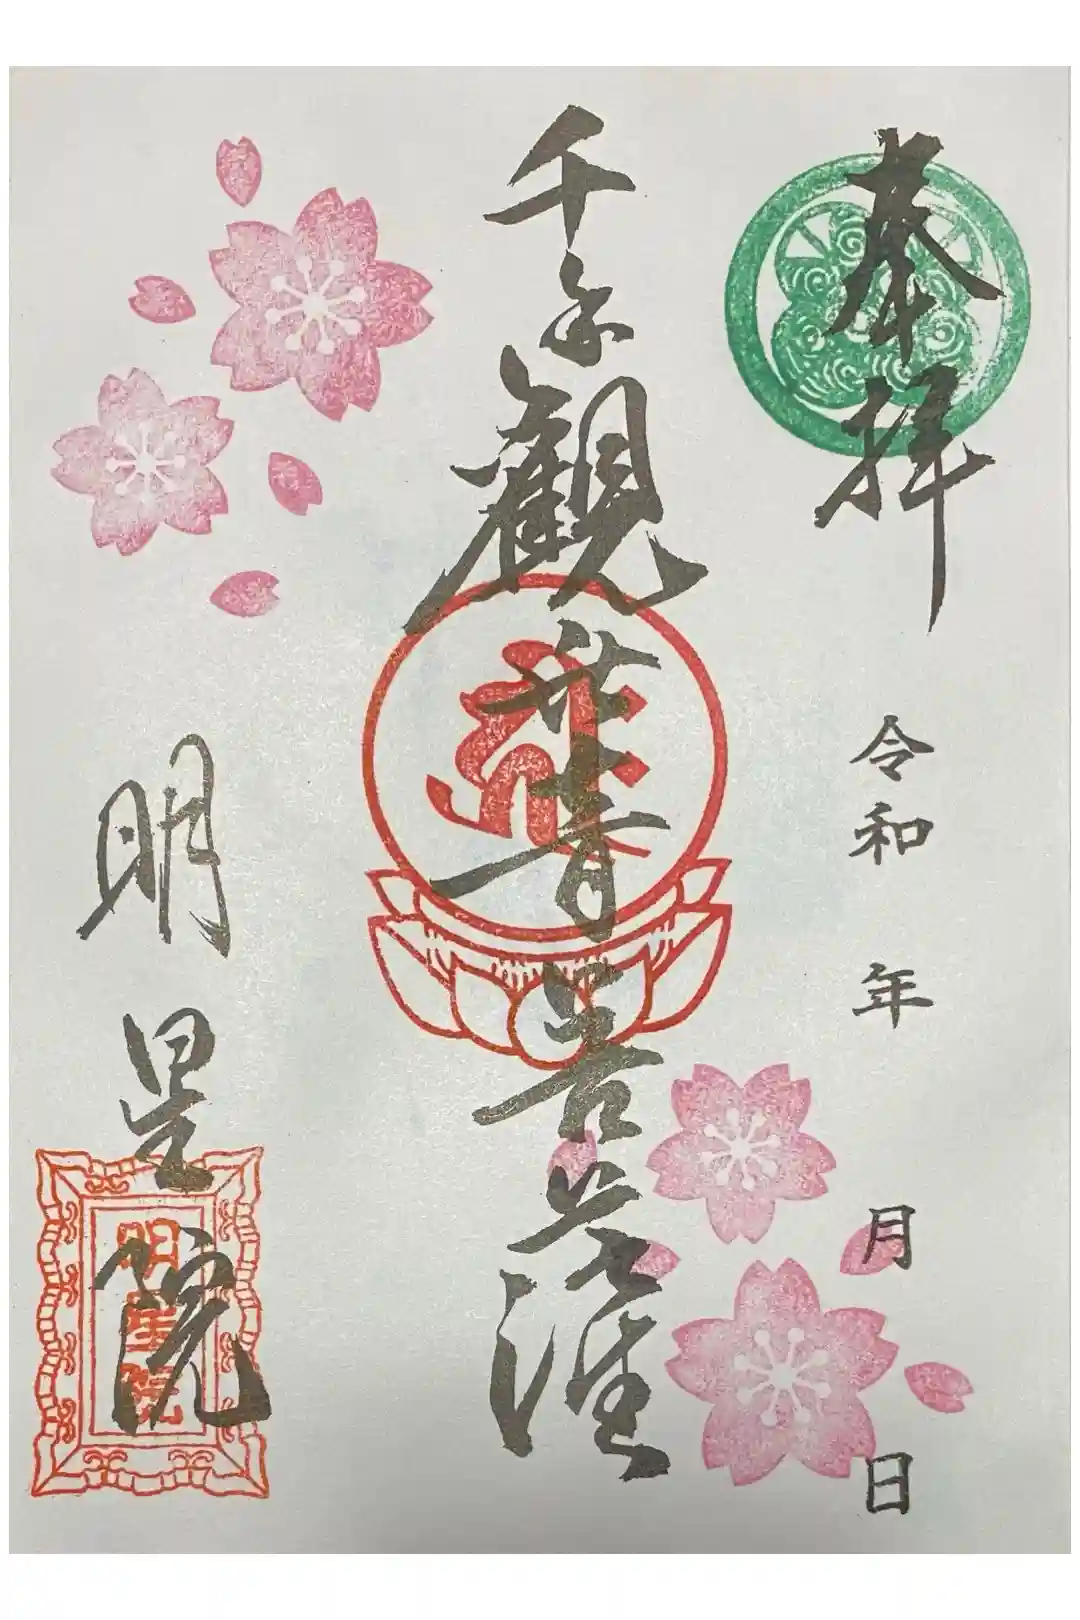 奉拝
令和 年 月 日
千手觀世音菩薩
明星院
明星院